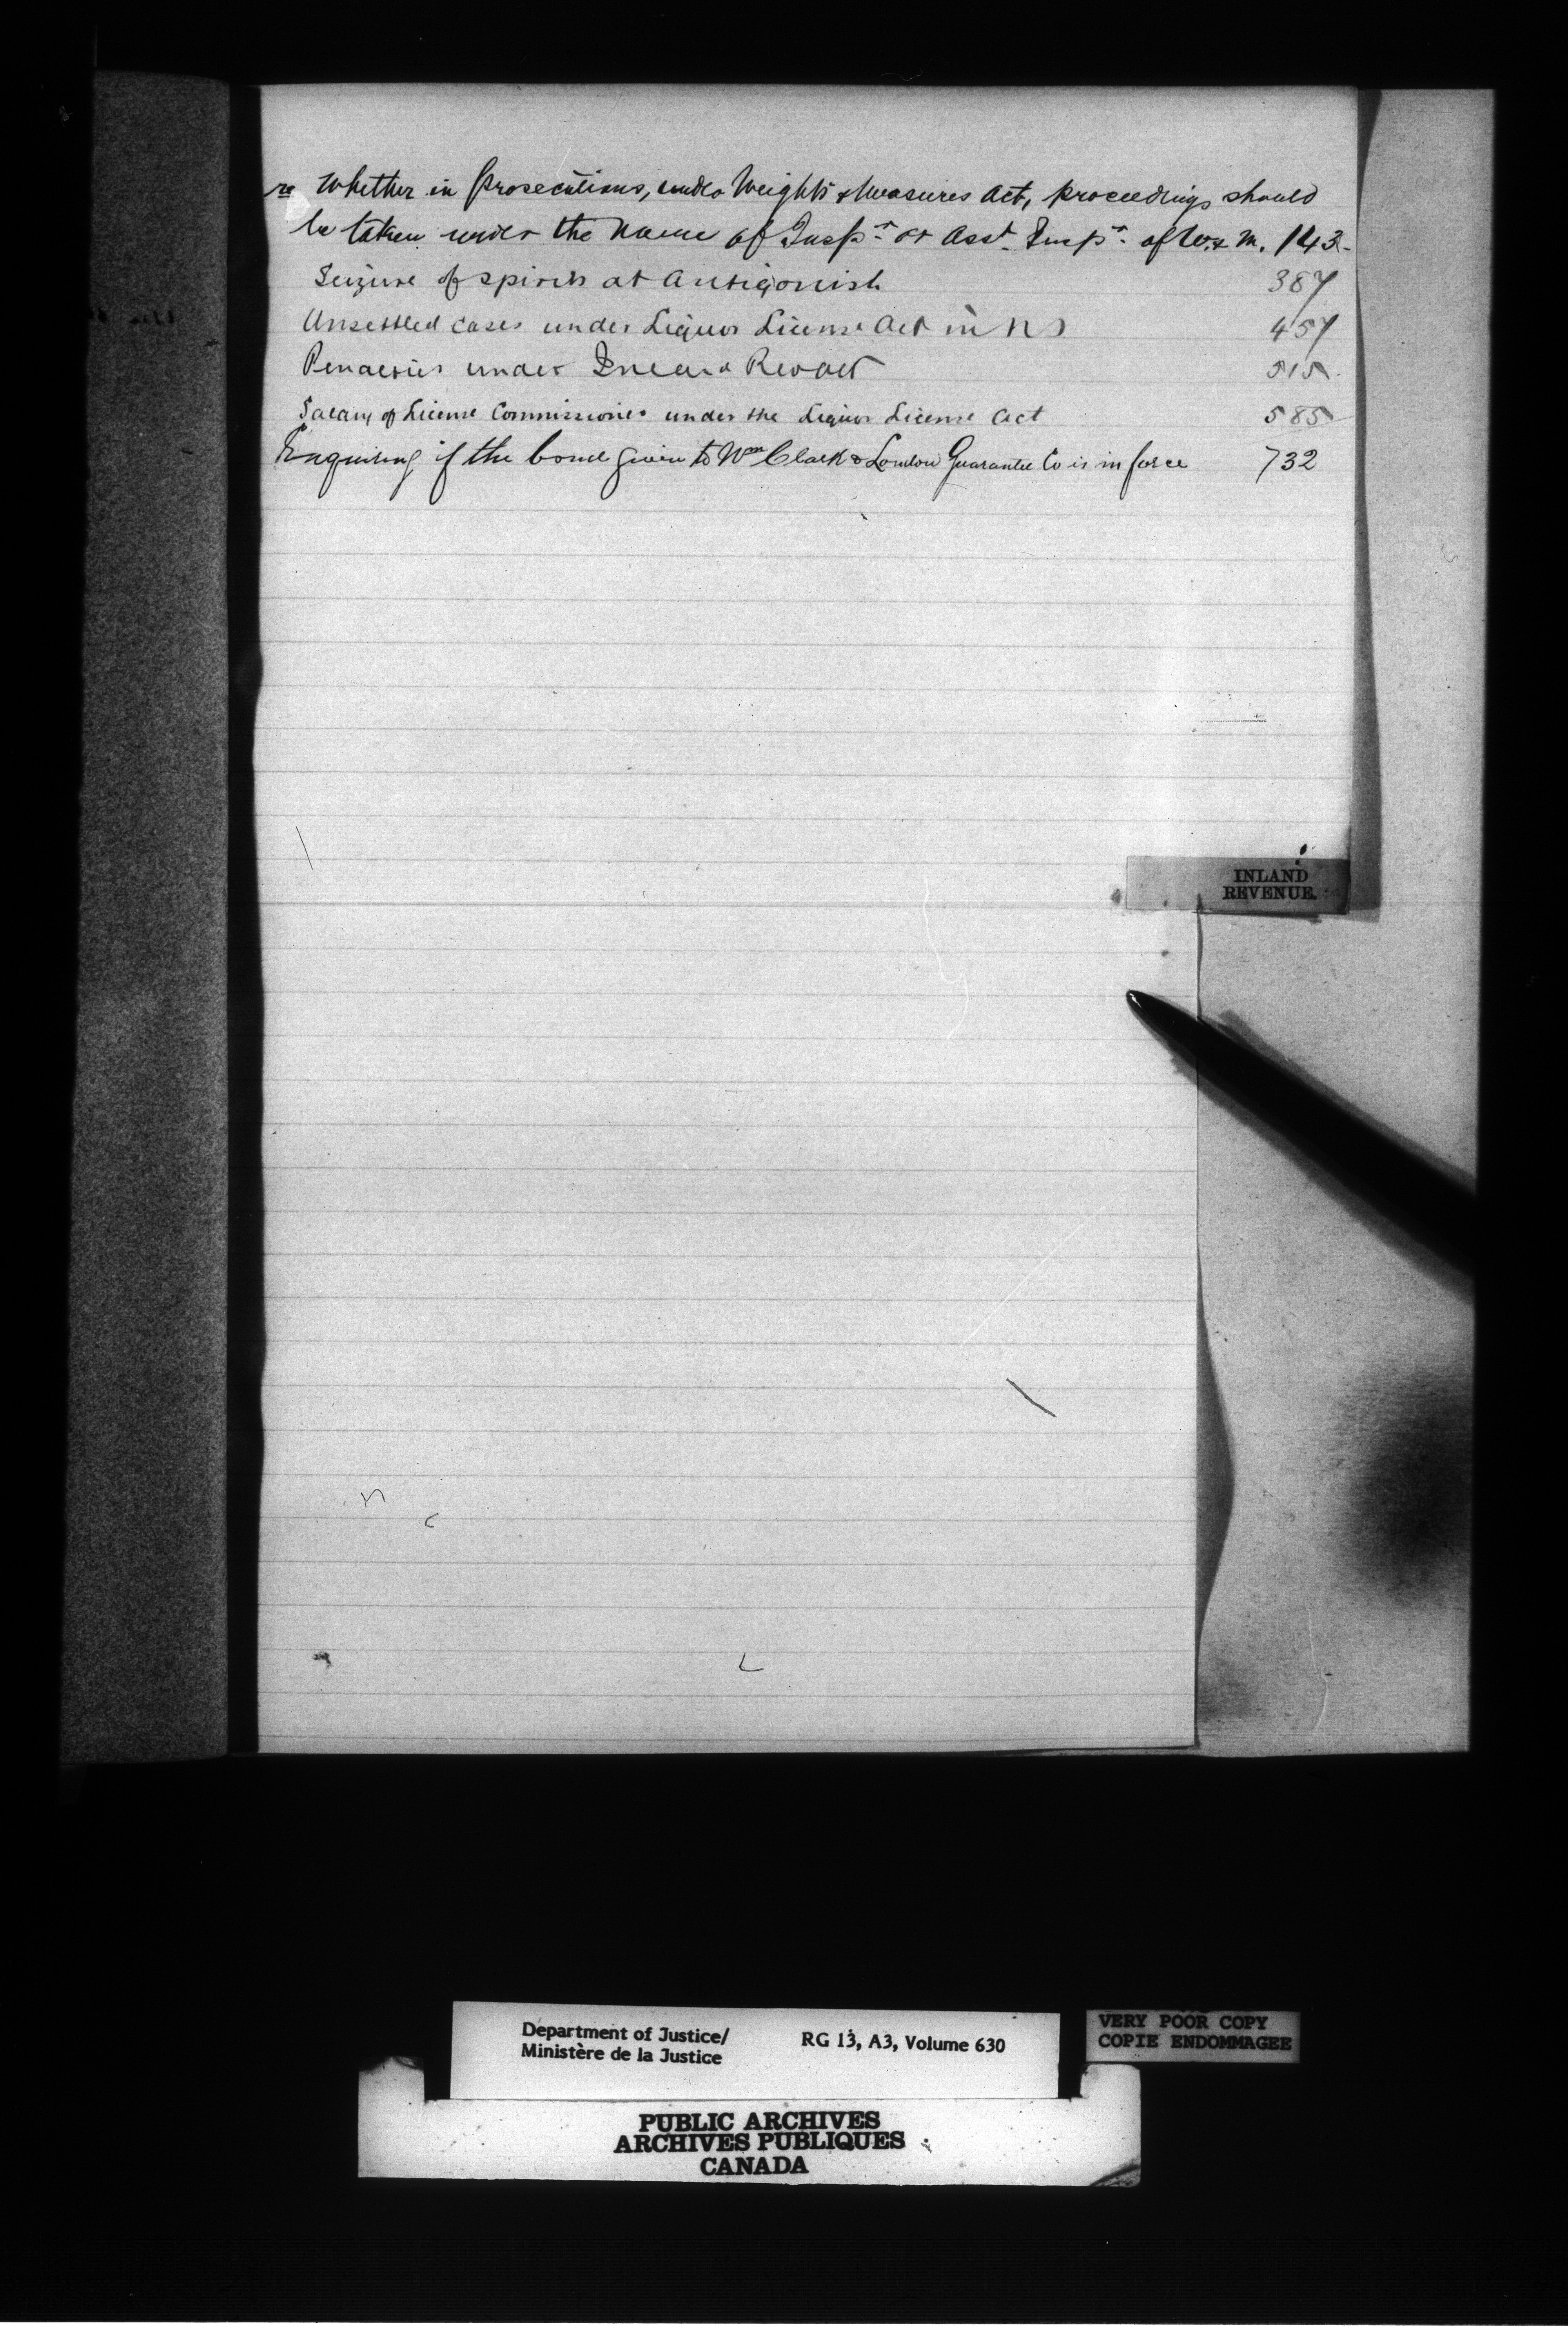 re Whether in prosecutions, under Weights & Measures Act, proceedings should
be taken under the name of Inspr. or Asst. Inspr. of W. & M. 143
Seizure of spirits at Antigonish 387
Unsettled cases under Liquor License Act in NS 457
Penalties under Inland Rev Act 515
Salary of License Commissioner under the Liquor License Act 585
Enquiring if the bond given to Wm Clark & London Guarantee Co is in force 732
INLAND
REVENUE.
Department of Justice/
Ministère de la Justice
RG 13, A3, Volume 630
VERY POOR COPY
COPIE ENDOMMAGEE
PUBLIC ARCHIVES
ARCHIVES PUBLIQUES
CANADA